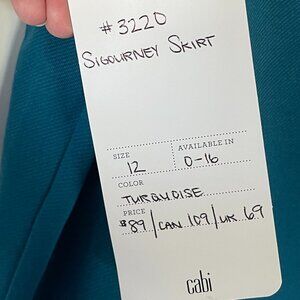 # 3220
SIGOURNEY SKIRT
SIZE AVAILABLE IN
12 0-16
COLOR
TURQUOISE
PRICE
$89 / CAN 109 / UK 69
cabi